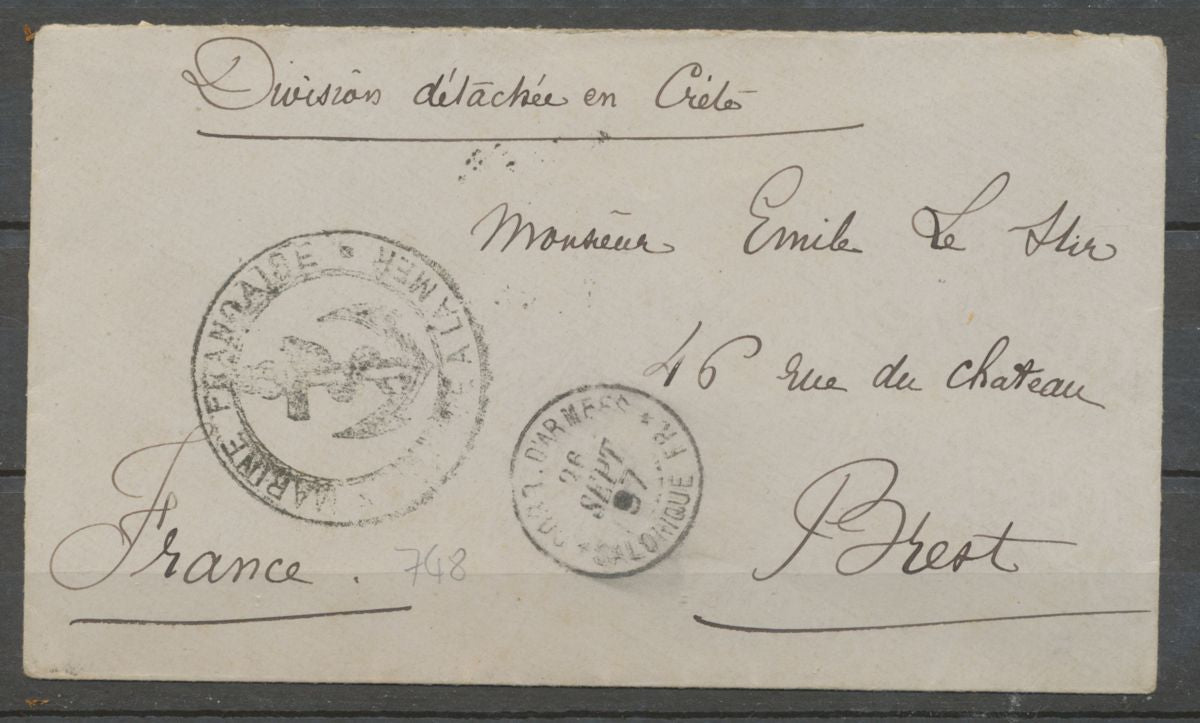 Division détachée en Crète
Monsieur Emile Le Stir
46 rue du chateau
Brest
France.
748
MARINE FRANÇAISE * A LA MER
CORR. D'ARMEES * SALONIQUE
26
SEPT
97